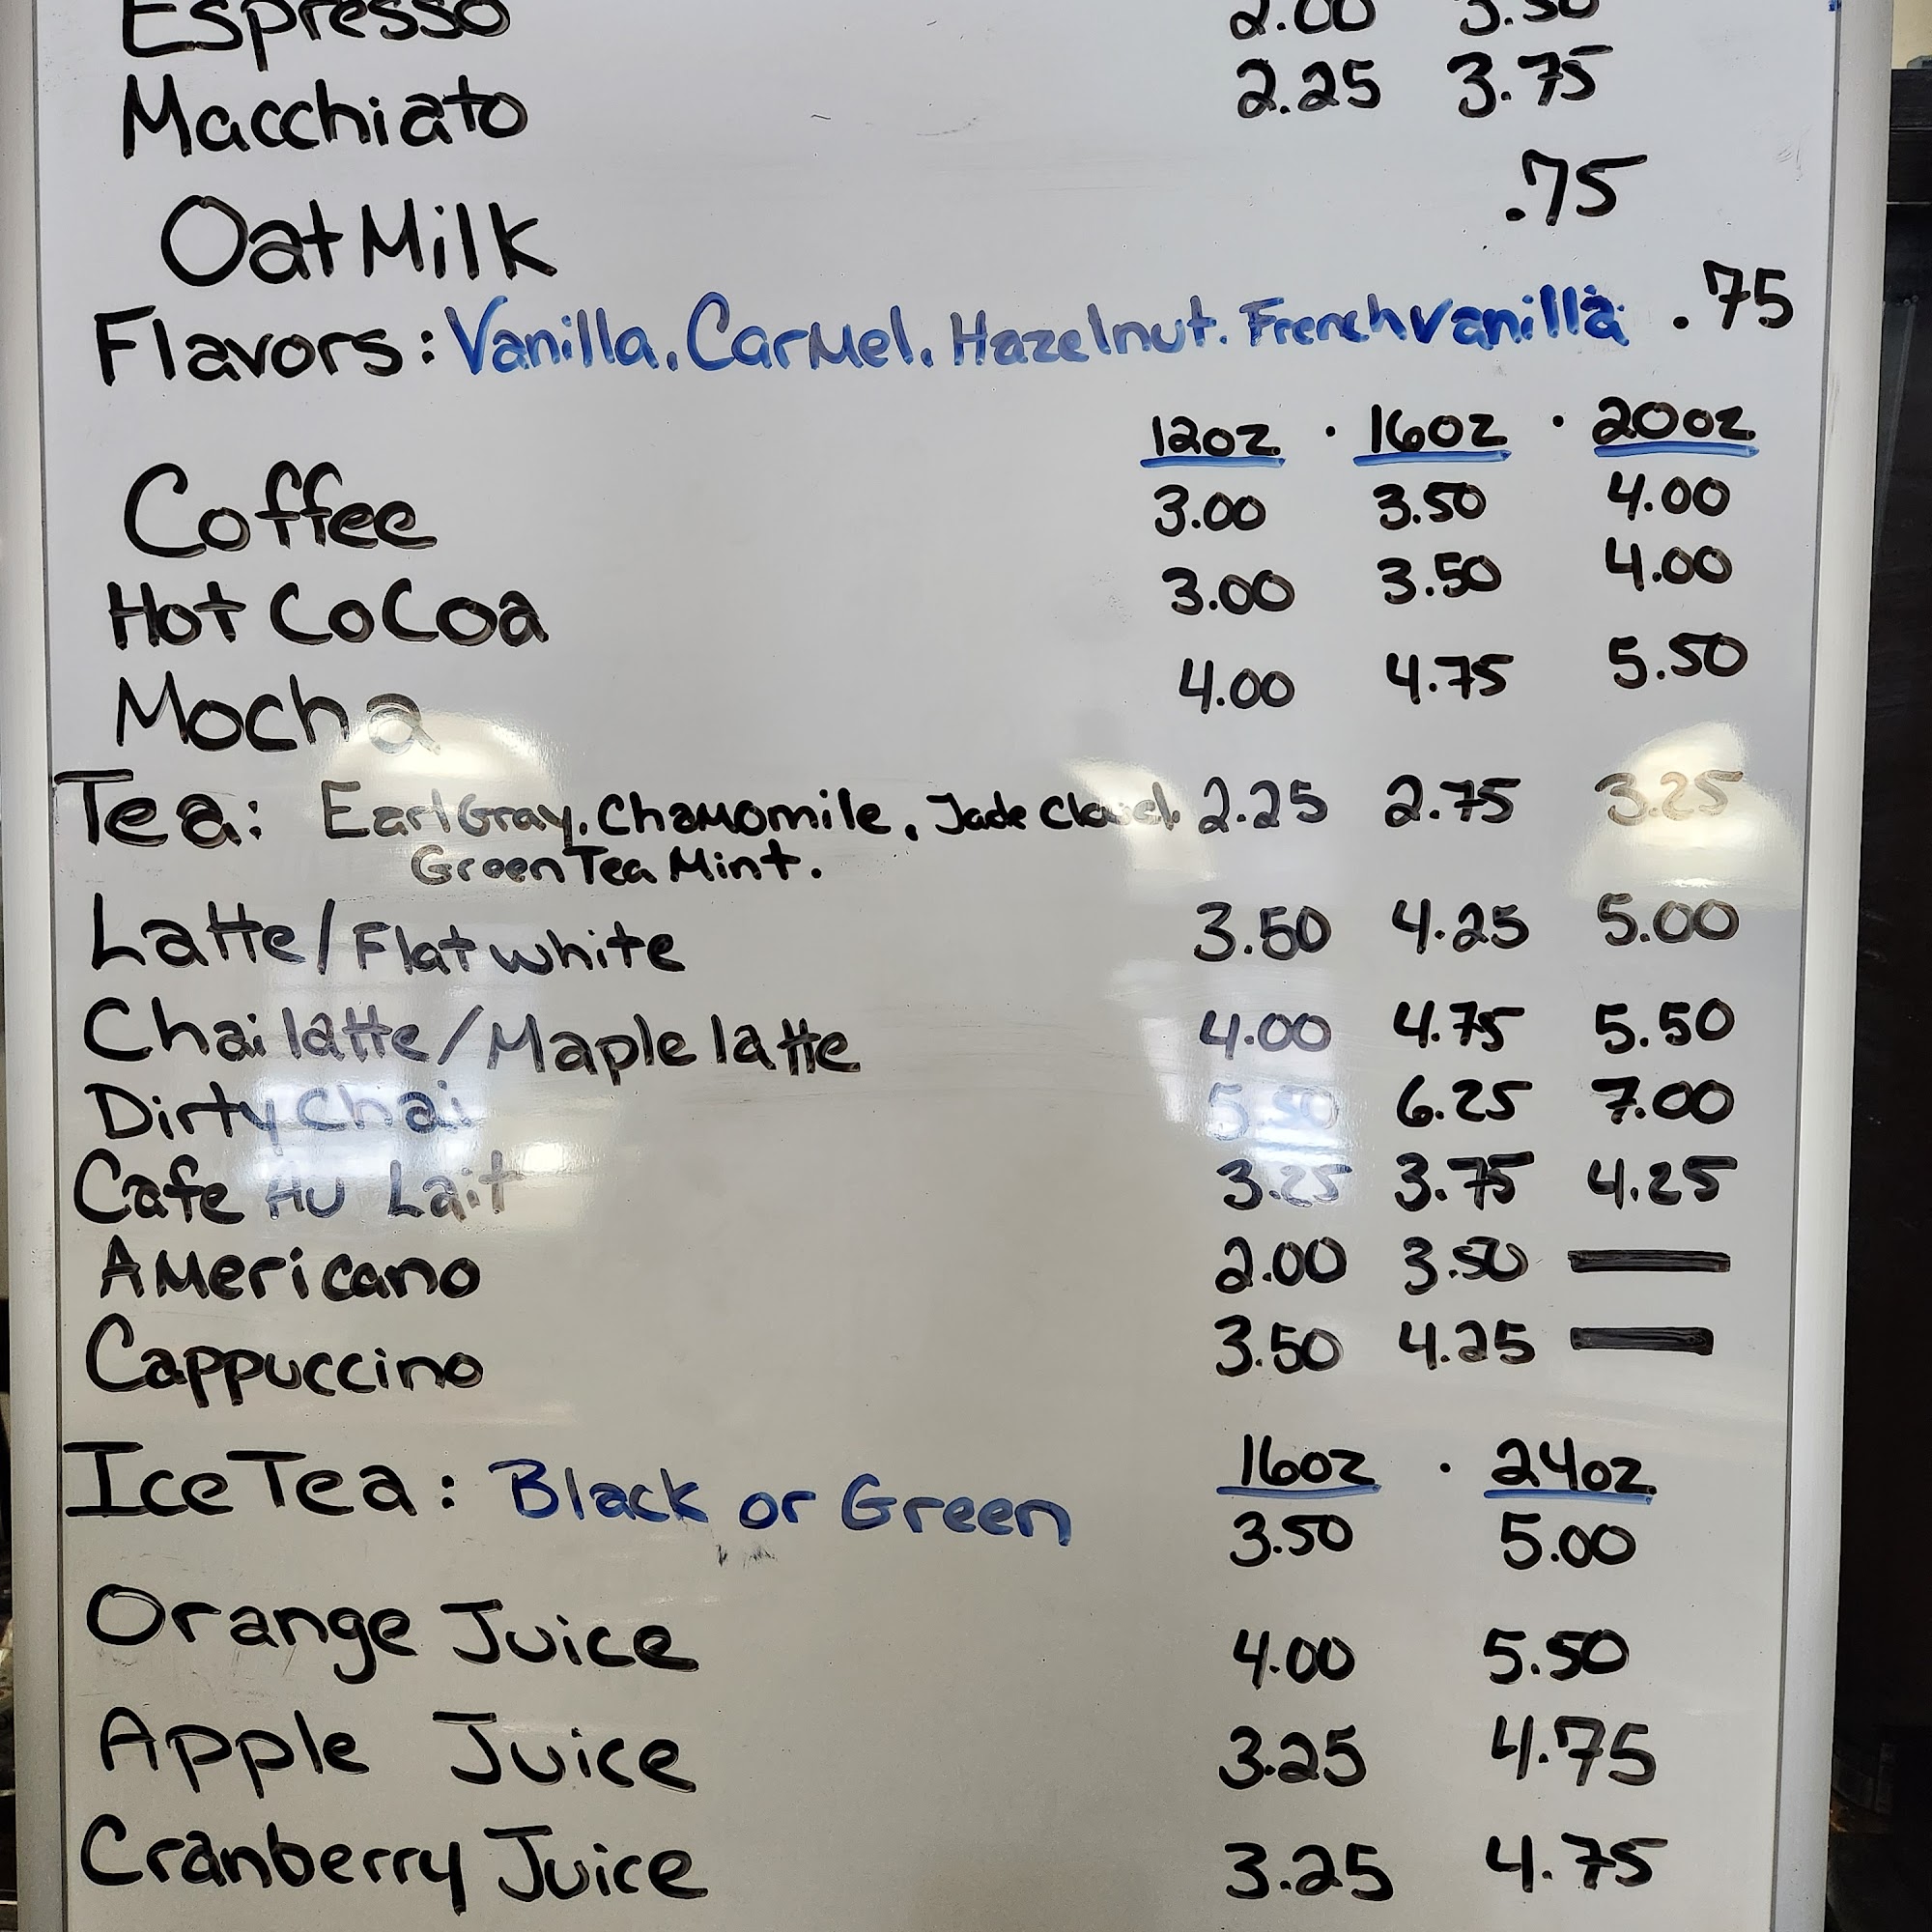 Espresso 2.00 3.50
Macchiato 2.25 3.75
Oat Milk .75
Flavors: Vanilla. Carmel. Hazelnut. French Vanilla .75
12oz · 16oz · 20oz
Coffee 3.00 3.50 4.00
Hot CoCoa 3.00 3.50 4.00
Mocha 4.00 4.75 5.50
Tea: Earl Gray. Chamomile. Jade Cloud. 2.25 2.75 3.25
Green Tea Mint.
Latte/Flat white 3.50 4.25 5.00
Chai latte/Maple latte 4.00 4.75 5.50
Dirty Chai 5.50 6.25 7.00
Cafe Au Lait 3.25 3.75 4.25
Americano 2.00 3.50 —
Cappuccino 3.50 4.25 —
16oz · 24oz
Ice Tea: Black or Green 3.50 5.00
Orange Juice 4.00 5.50
Apple Juice 3.25 4.75
Cranberry Juice 3.25 4.75